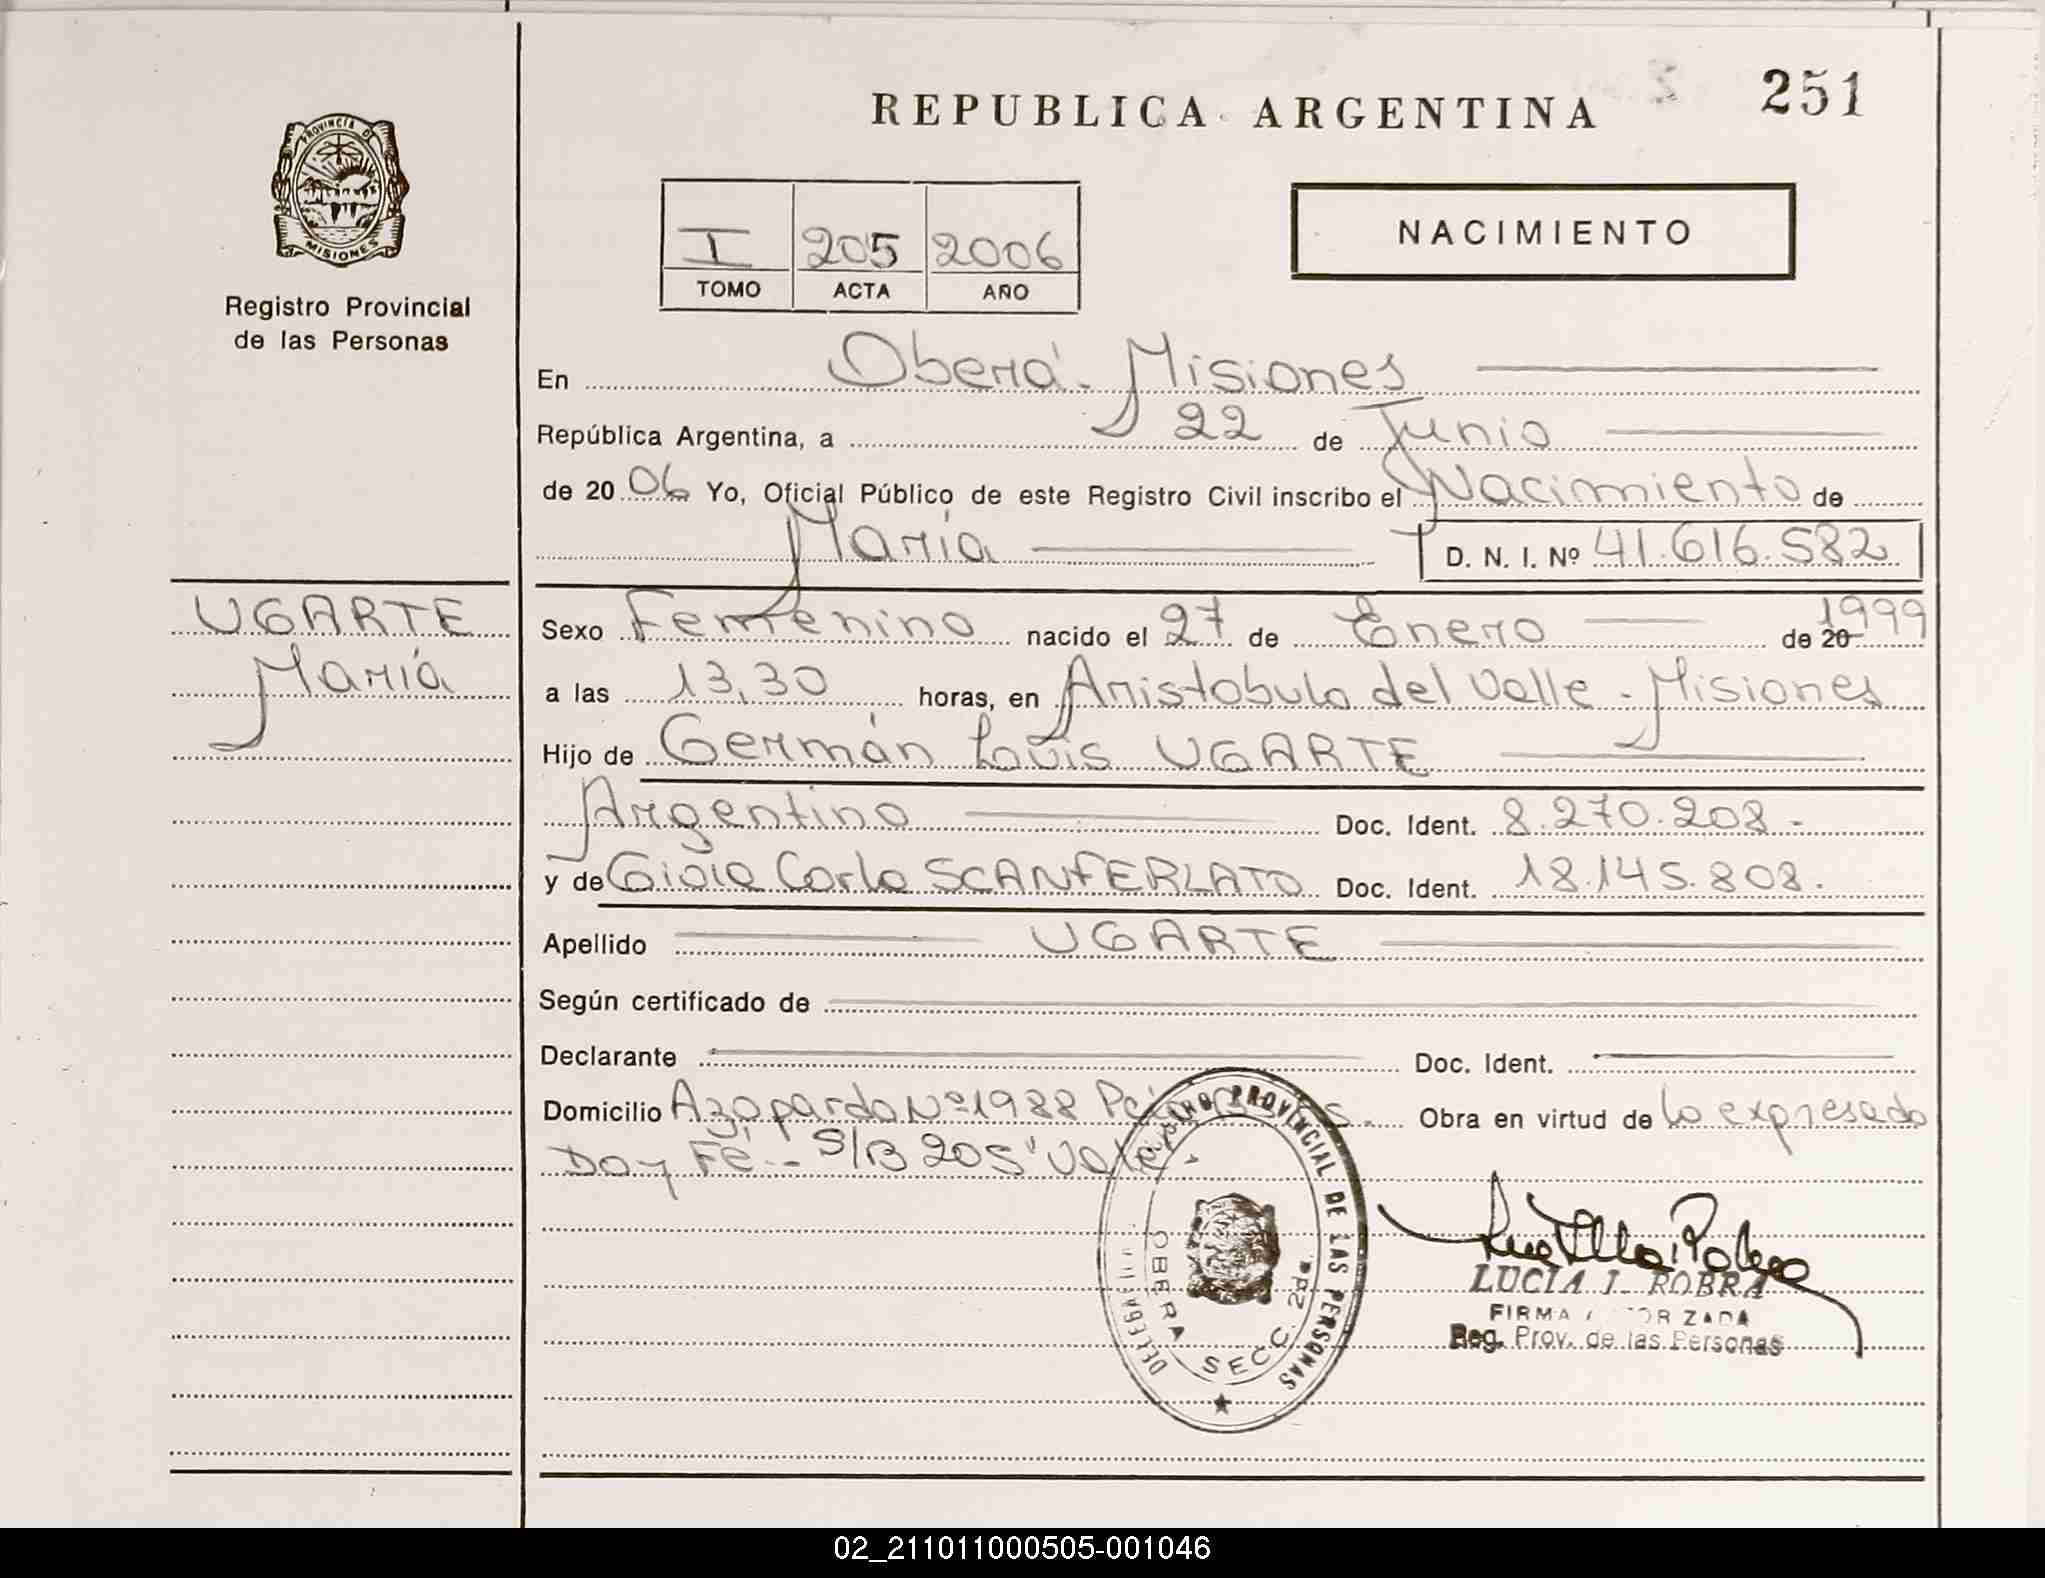 251
REPUBLICA ARGENTINA
PROVINCIA DE
MISIONES
Registro Provincial
de las Personas
I 205 2006
TOMO ACTA AÑO
NACIMIENTO
En Oberá - Misiones
República Argentina, a 22 de Junio
de 2006 Yo, Oficial Público de este Registro Civil inscribo el Nacimiento de
María D. N. I. Nº 41.616.582
UGARTE
María
Sexo Femenino nacido el 27 de Enero de 20 1999
a las 13,30 horas, en Aristobulo del Valle - Misiones
Hijo de Germán Louis UGARTE
Argentino Doc. Ident. 8.270.208 -
y de Gioia Carla SCANFERLATO Doc. Ident. 18.145.808.
Apellido UGARTE
Según certificado de
Declarante Doc. Ident.
Domicilio Azopardo Nº 1988 S. Obra en virtud de lo expresado
Doy Fé.- S/B 205 "Vale"
PROVINCIAL DE LAS PERSONAS
DELEGACION
OBERA SECC. 2da.
LUCIA J. ROBRA
FIRMA AUTORIZADA
Reg. Prov. de las Personas
02_211011000505-001046